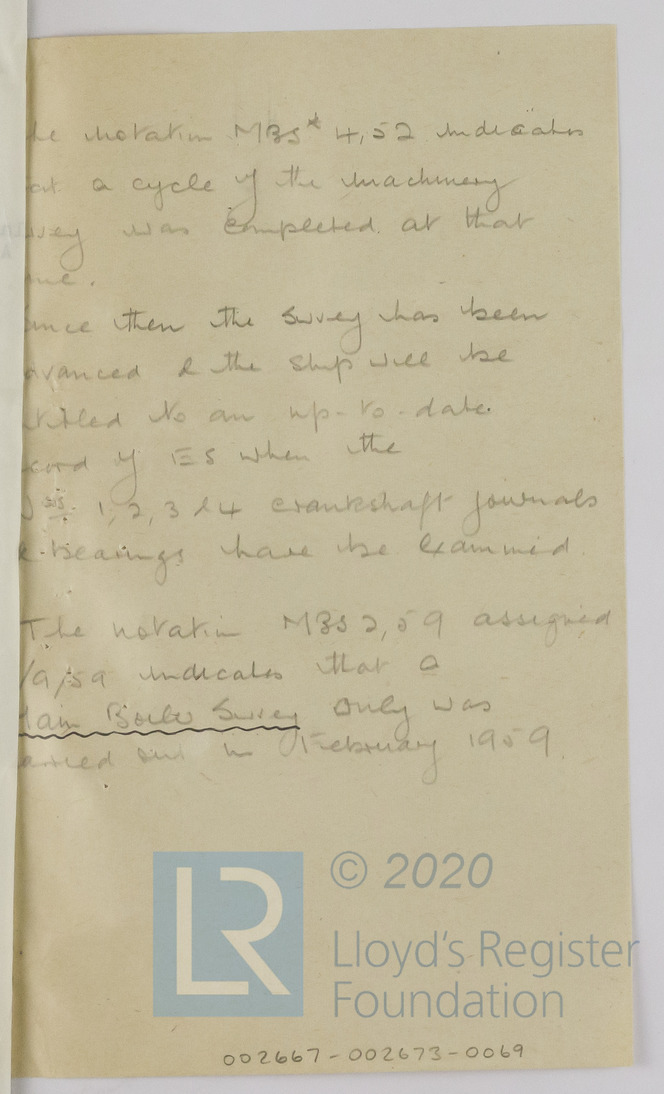 he notation MBS* 4,52 indicates
at a cycle of the machinery
vey was completed at that
me.
ince then the Survey has been
dvanced & the ship will be
ntitled to an up-to-date
cord of ES when the
Nos. 1, 2, 3 & 4 crankshaft journals
& bearings have be examined.
The notation MBS 2,59 assigned
/9/59 indicates that a
Main Boiler Survey only was
arried out in February 1959.
© 2020
LR
Lloyd's Register
Foundation
002667-002673-0069